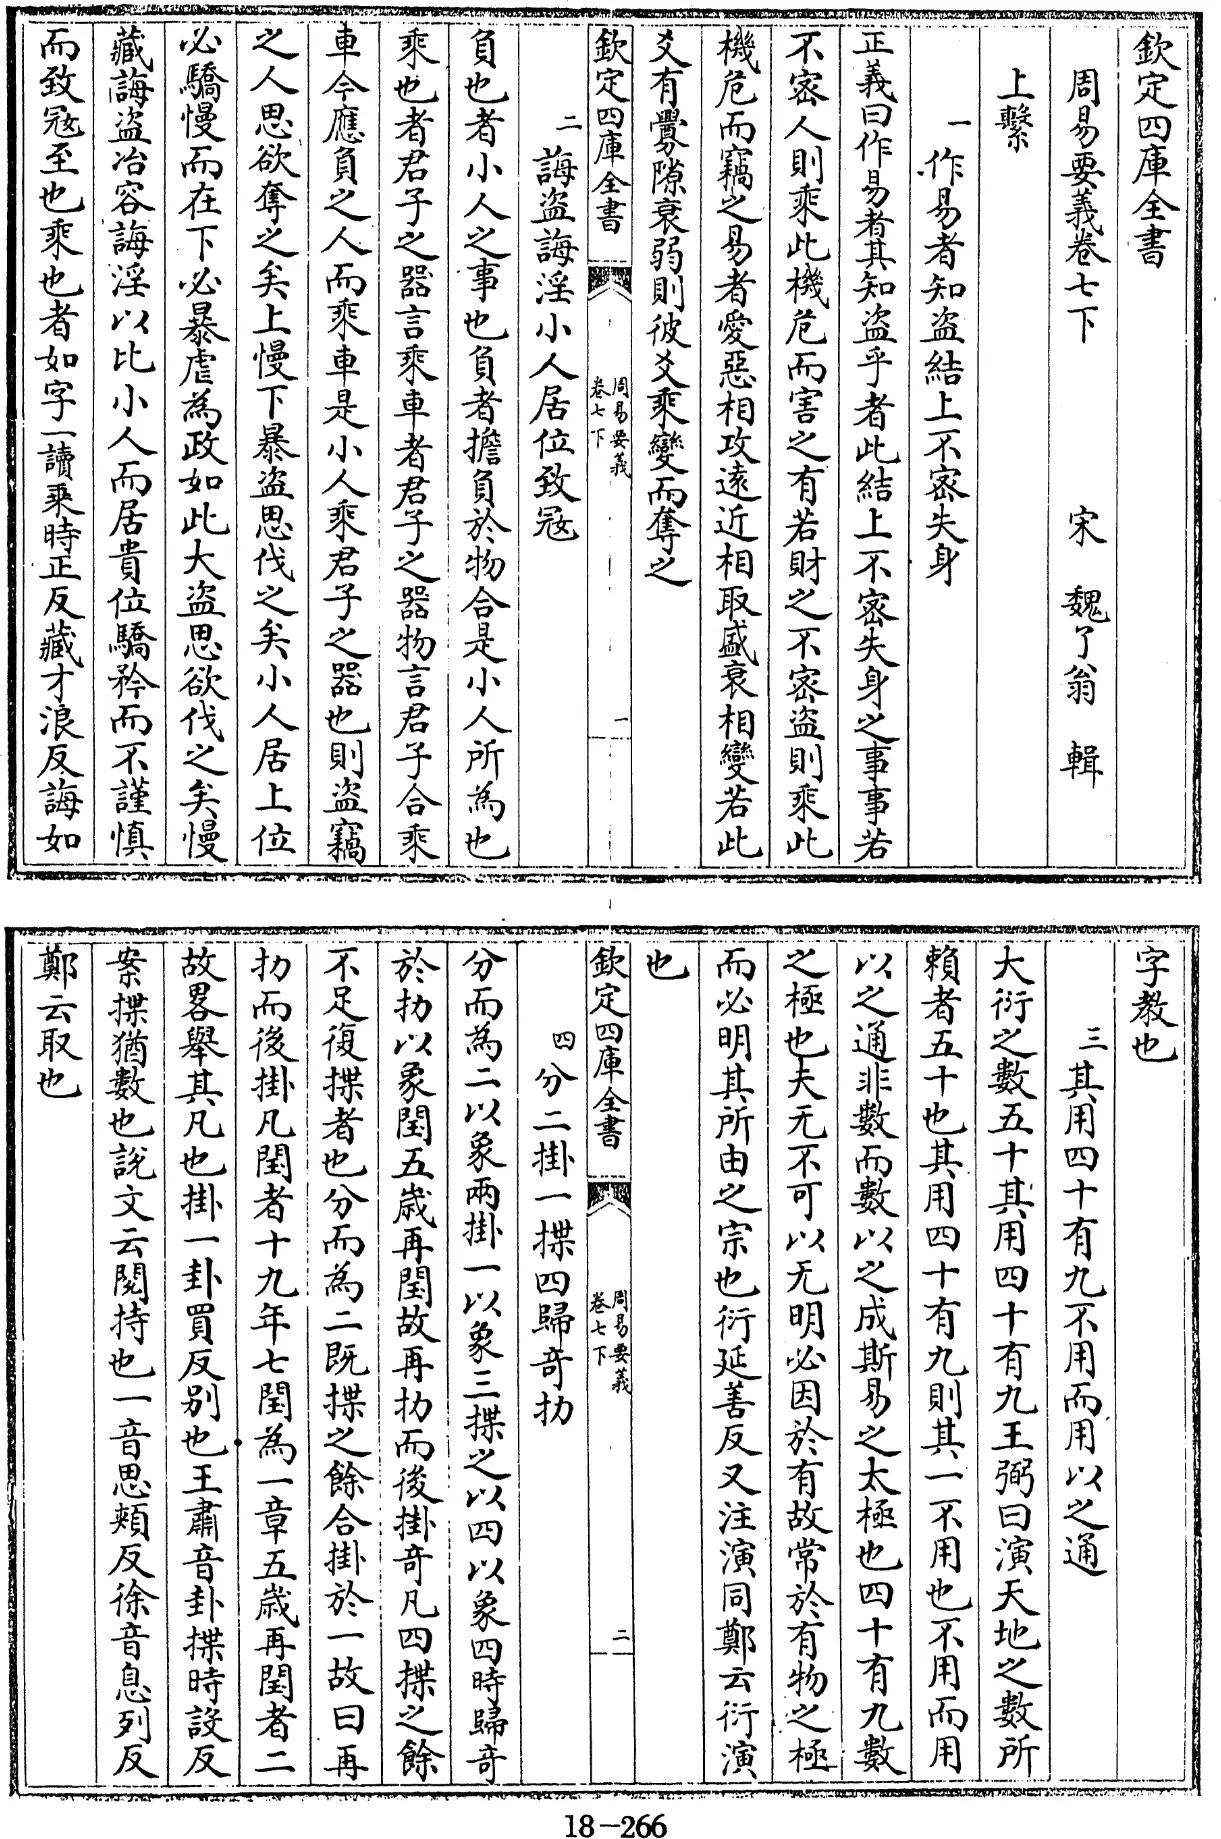 欽定四庫全書
周易要義卷七下
宋 魏了翁 輯
上繫
一作易者知盜結上不密失身
正義曰作易者其知盜乎者此結上不密失身之事事若
不密人則乘此機危而害之有若財之不密盜則乘此
機危而竊之易者愛惡相攻遠近相取盛衰相變若此
爻有釁隙衰弱則彼爻乘變而奪之
欽定四庫全書
周易要義
卷七下
一
二誨盜誨淫小人居位致寇
負也者小人之事也負者擔負於物合是小人所為也
乘也者君子之器言乘車者君子之器物言君子合乘
車今應負之人而乘車是小人乘君子之器也則盜竊
之人思欲奪之矣上慢下暴盜思伐之矣小人居上位
必驕慢而在下必暴虐為政如此大盜思欲伐之矣慢
藏誨盜冶容誨淫以比小人而居貴位驕矜而不謹慎
而致寇至也乘也者如字一讀乘時正反藏才浪反誨如
字教也
三其用四十有九不用而用以之通
大衍之數五十其用四十有九王弼曰演天地之數所
賴者五十也其用四十有九則其一不用也不用而用
以之通非數而數以之成斯易之太極也四十有九數
之極也夫无不可以无明必因於有故常於有物之極
而必明其所由之宗也衍延善反又注演同鄭云衍演
也
欽定四庫全書
周易要義
卷七下
二
四分二掛一揲四歸奇扐
分而為二以象兩掛一以象三揲之以四以象四時歸奇
於扐以象閏五歲再閏故再扐而後掛奇凡四揲之餘
不足復揲者也分而為二既揲之餘合掛於一故曰再
扐而後掛凡閏者十九年七閏為一章五歲再閏者二
故畧舉其凡也掛一卦買反别也王肅音卦揲時設反
案揲猶數也說文云閱持也一音思頰反徐音息列反
鄭云取也
18-266